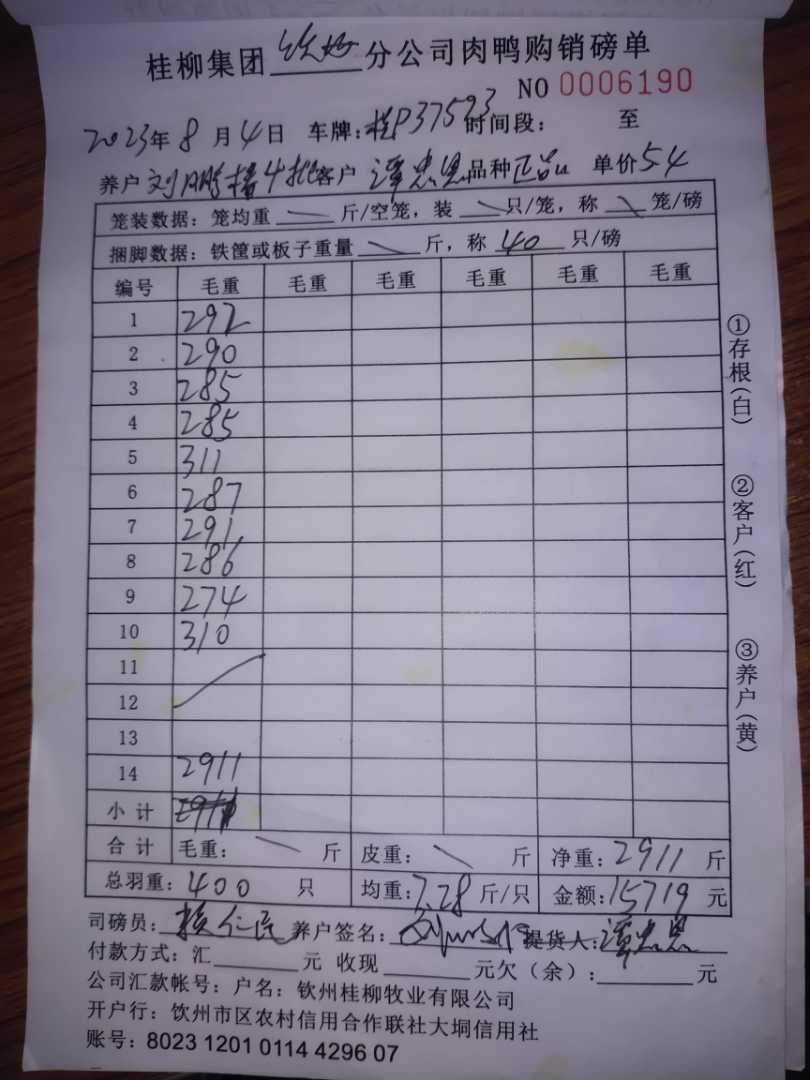 桂柳集团 钦州 分公司肉鸭购销磅单
NO 0006190
2023年 8 月 4 日 车牌:桂P37593 时间段: 至
养户 刘鹏 4批 客户 谭忠恩 品种 正品 单价 5.4
笼装数据: 笼均重 斤/空笼, 装 只/笼, 称 笼/磅
捆脚数据: 铁筐或板子重量 斤, 称 40 只/磅
编号 毛重 毛重 毛重 毛重 毛重 毛重
1 292
2 290
3 285
4 285
5 311
6 287
7 291
8 286
9 274
10 310
11
12
13
14 2911
小计
合计 毛重: 斤 皮重: 斤 净重: 2911 斤
总羽重: 400 只 均重: 7.28 斤/只 金额: 15719 元
司磅员: 养户签名: 提货人: 谭忠恩
付款方式: 汇 元 收现 元欠(余): 元
公司汇款帐号: 户名: 钦州桂柳牧业有限公司
开户行: 钦州市区农村信用合作联社大垌信用社
账号: 8023 1201 0114 4296 07
①存根(白)
②客户(红)
③养户(黄)